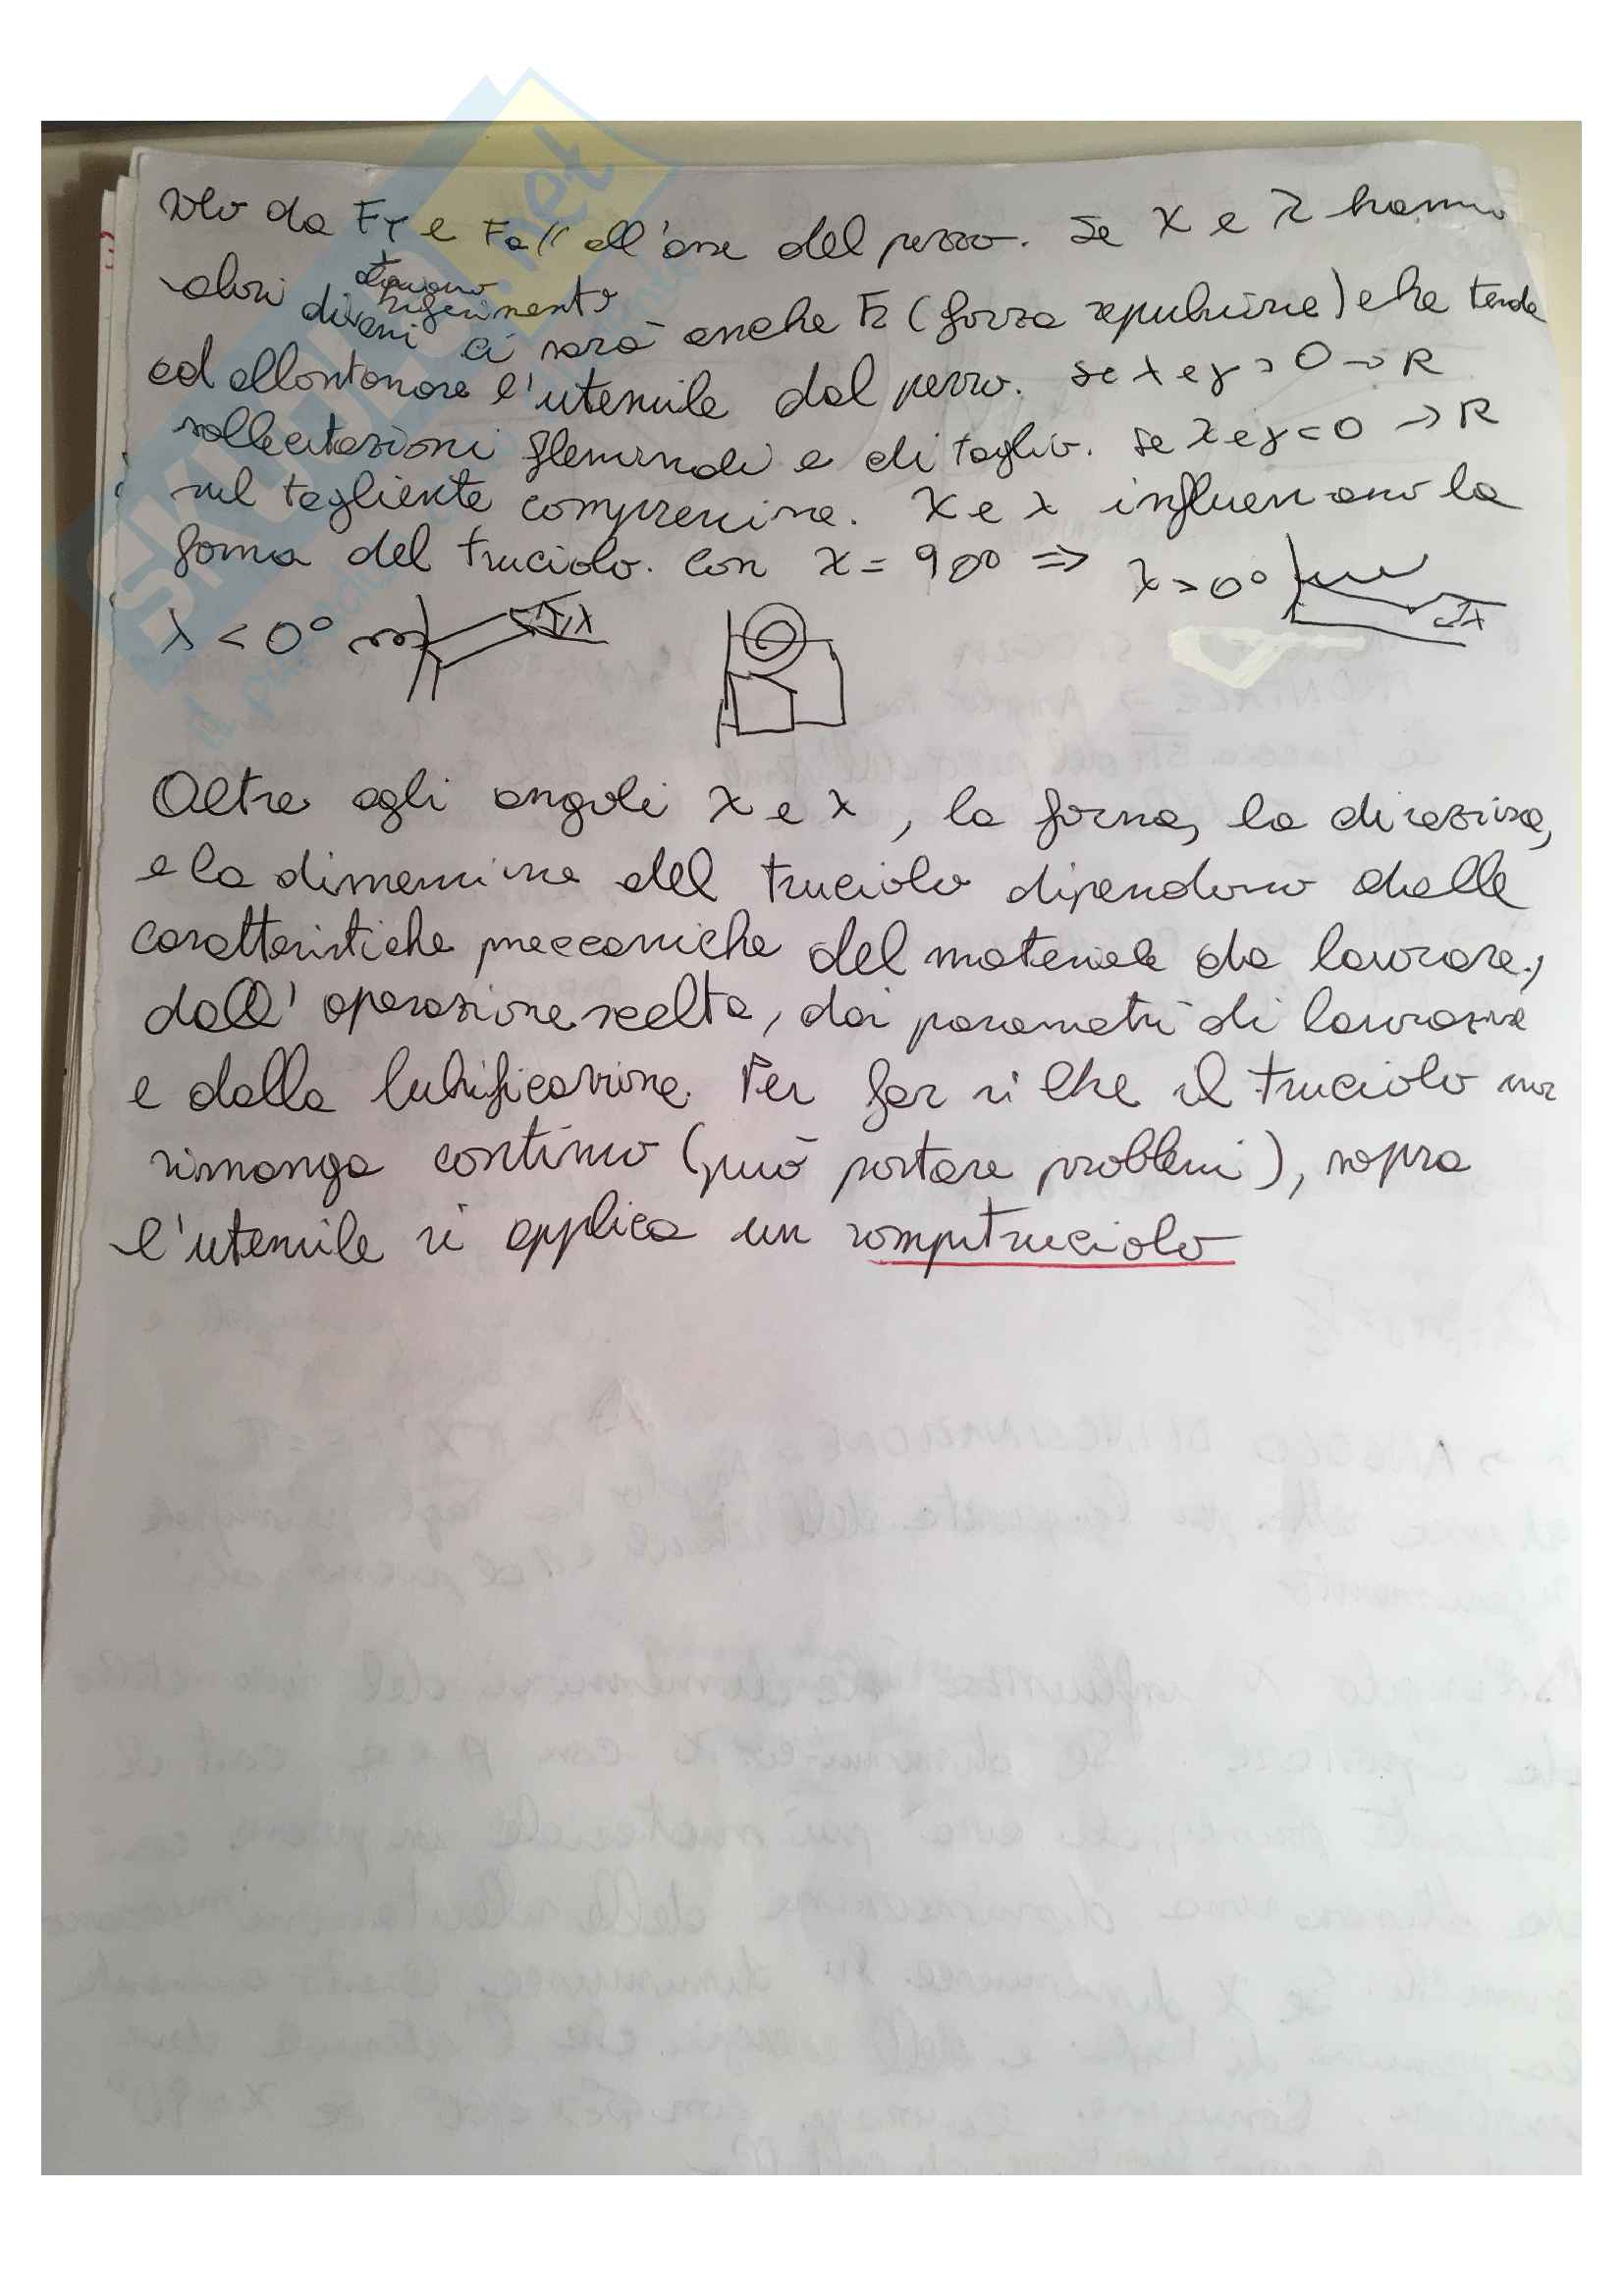 solo da FT e Fa // all'asse del pezzo. Se χ e λ hanno
valori diversi ci sarà anche FR (forza repulsione) che tende
riferimento
ad allontanare l'utensile dal pezzo. se λ e γ > 0 → R
sollecitazioni flessionali e di taglio. se λ e γ < 0 → R
sul tagliente compressione. χ e λ influenzano la
forma del truciolo. con χ = 90° ⇒ λ > 0°
λ
λ < 0°
λ
Oltre agli angoli χ e λ, la forma, la direzione,
e la dimensione del truciolo dipendono dalle
caratteristiche meccaniche del materiale da lavorare,
dall'operazione scelta, dai parametri di lavorazione
e dalla lubrificazione. Per far sì che il truciolo non
rimanga continuo (può portare problemi), sopra
l'utensile si applica un rompitruciolo